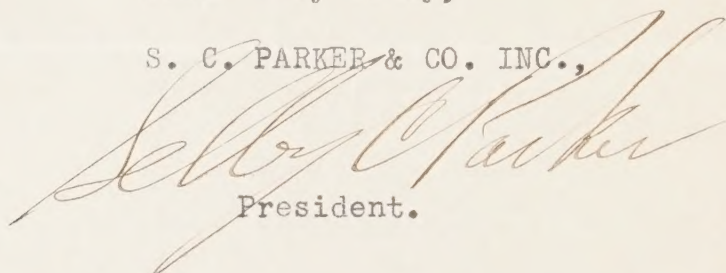 S. C. PARKER & CO. INC.,
Selby C Parker
President.